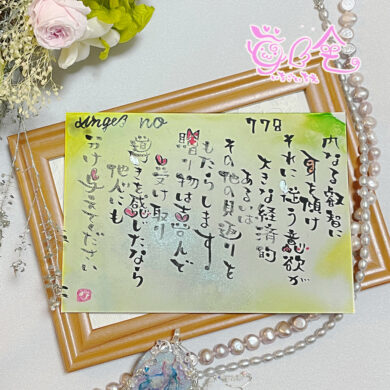 angel no 778
内なる叡智に
耳を傾け
それに従う意欲が
大きな経済的
あるいは
その他の見返りを
もたらします
贈り物は喜んで
受け取り
導きを感じたなら
他人にも
分け与えてください